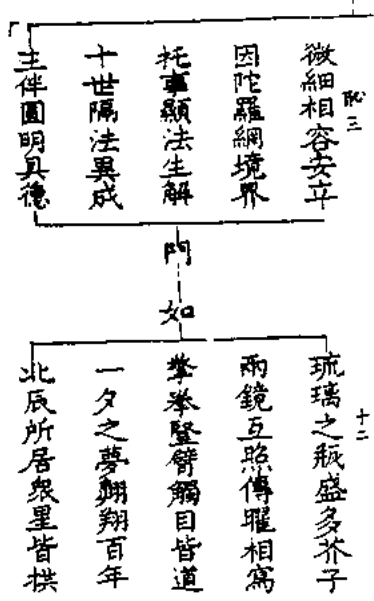 恥三
微細相容安立
因陀羅網境界
托事顯法生解
十世隔法異成
主伴圓明具德
門
如
十二
琉璃之瓶盛多芥子
兩鏡互照傳曜相寫
擎拳竪臂觸目皆道
一夕之夢翺翔百年
北辰所居衆星皆拱